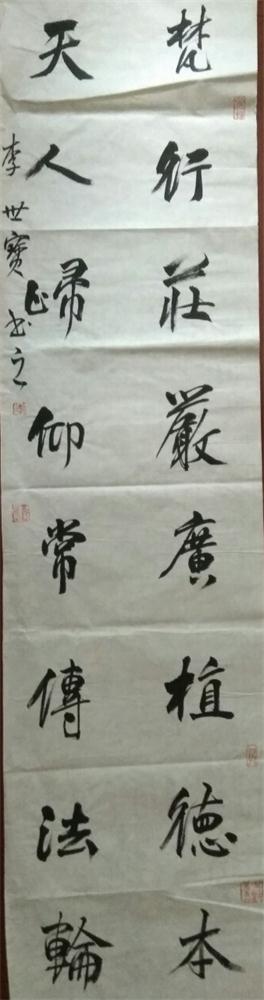 梵行莊嚴廣植德本
天人歸仰常傳法輪
李世寶書之